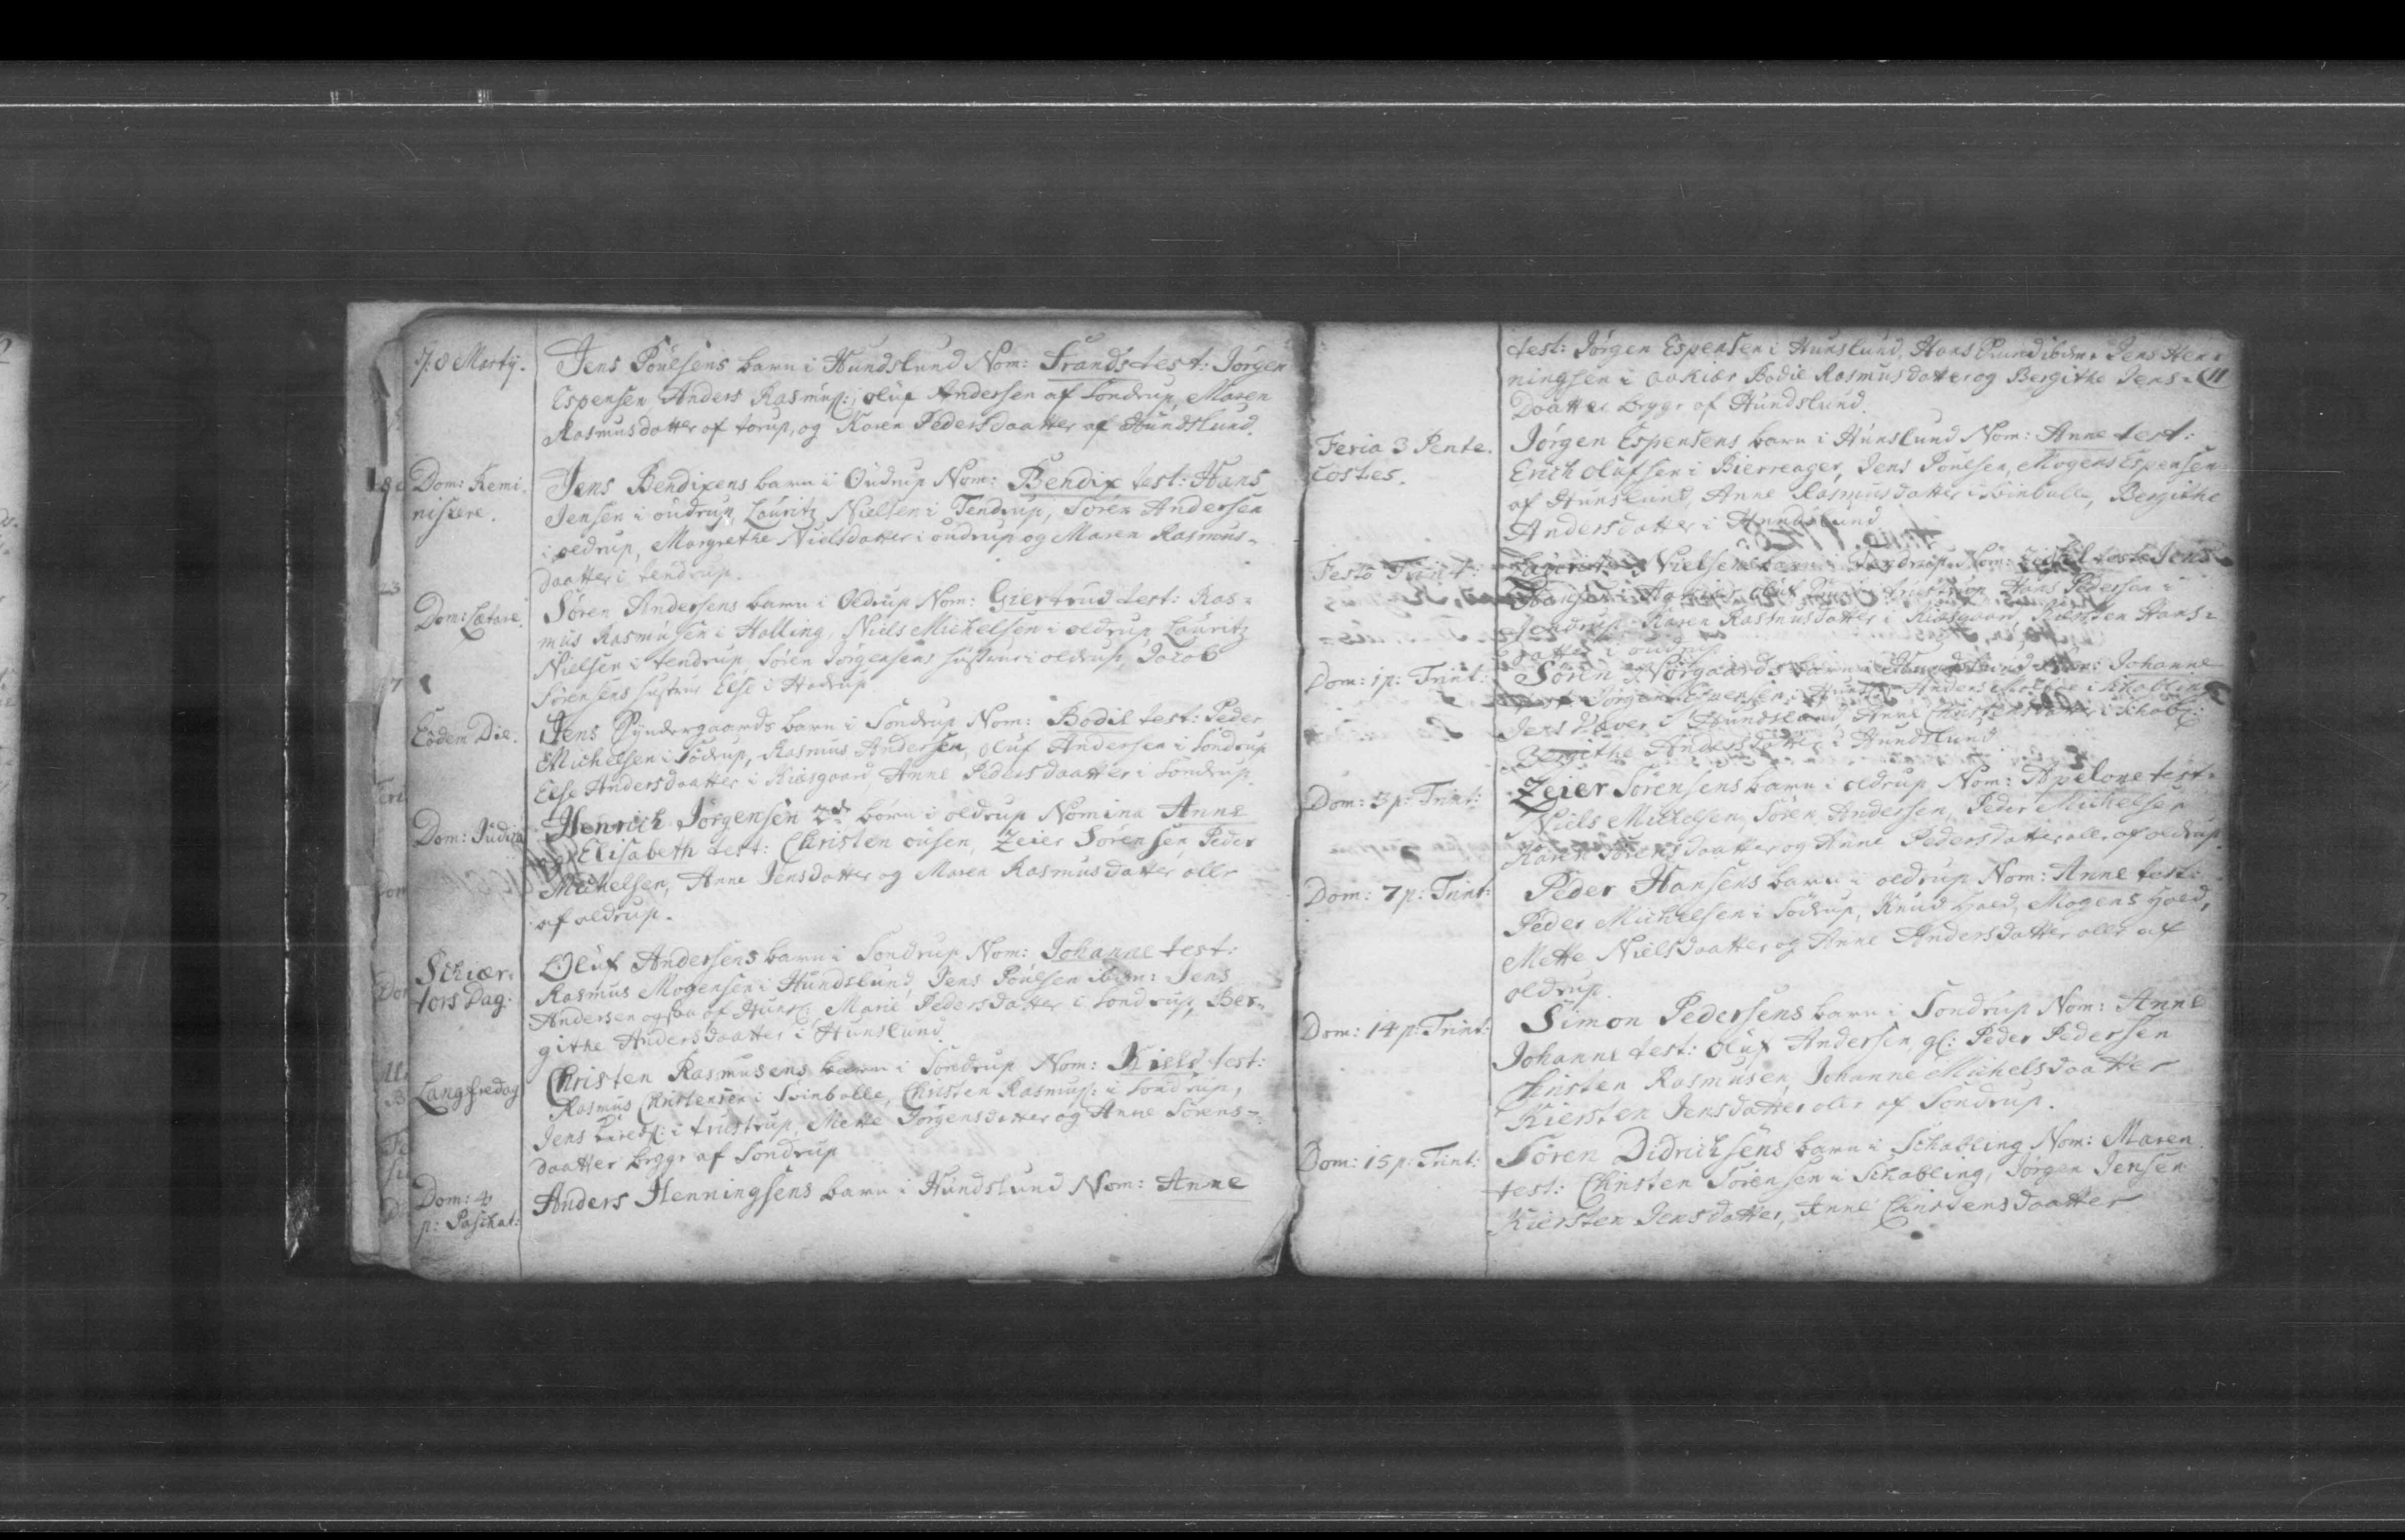 d: 8 Martij. Jens Poulsens barn i Hundslund Nom: Frands test: Jørgen
Espensen Anders Rasmus:, oluf Andersen af Sondrup, Maren
Rasmusdatter af torup, og Karen Pedersdaatter af Hundslund.
Dom: Remi- Jens Bendixens barn i Oudrup Nom: Bendix test: Hans
niscere. Jensen i oudrup, Lauritz Nielsen i Tendrup, Søren Andersen
i oldrup, Margrethe Nielsdatter i oudrup og Maren Rasmus-
daatter i tendrup.
Dom: Lætare. Søren Andersens barn i Oldrup Nom: Giertrud test: Ras=
mus Rasmusen i Halling, Niels Michelsen i oldrup, Lauritz
Nielsen i tendrup, Søren Jørgensens hustrue i oldrup, Jacob
Sørensens hustrue Else i Hadrup
Eodem Die. Jens Pyndergaards barn i Sondrup Nom: Bodil test: Peder
Michelsen i Södrup, Rasmus Andersen, oluf Andersen i Sondrup
Else Andersdaatter i Kiærsgaard, Anne Pedersdaatter i Sondrup.
Dom: Judica Henrich Jørgensen 2de børn i oldrup Nomina Anne
og Elisabeth test: Christen ousen, Zeier Sørensen, Peder
Michelsen, Anne Jensdatter og Maren Rasmusdatter alle
af oldrup.
Schiær- Oluf Andersens barn i Sondrup Nom: Johanne test:
tors Dag. Rasmus Mogensen i Hundslund, Jens Poulsen ibdm: Jens
Andersen ogsaa af Hunsl: Marie Pedersdatter i Sondrup, Ber-
githe Andersdaatter i Hunslund.
Langfredag Christen Rasmusens barn i Sondrup Nom: Kield test:
Rasmus Christensen i Svinballe, Christen Rasmus: i Sondrup,
Jens i trustrup, Mette Jørgensdatter og Anne Sørens-
daatter begge af Sondrup
Dom: 4 Anders Henningsens barn i Hundslund Nom: Anne
p: Paschat:
test: Jørgen Espensen i Hunslund, Hans ibdm: Jens Hen-
ningsen i aakiær Bodil Rasmusdatter og Bergithe Jens- 11
Daatter begge af Hundslund.
Feria 3 Pente- Jørgen Espensens barn i Hunslund Nom: Anne test:
costes. Erich olufsen i Bierreager, Jens Poulsen, Mogens Espensen
af Hunslund, Anne Rasmusdatter i Svinballe, Bergithe
Andersdatter i Hundslund
Festo Trinit: Lauritz Nielsens barn i Tendrup Nom: test: Jens
i oluf i trustrup Hans Pedersen i
Tendrup Karen Rasmusdatter i Kiærsgaard, Kiersten Hans=
datter i oudrup
Dom: 1 p: Trint: Søren Nørgaards barn i Hundslund Nom: Johanne
test: Jørgen Espensen i Hunsl: Anders i Schabling
Jens Væver i Hundslund Anne Christensdatter i Schabl:
Bergithe Andersdatter i Hundslund
Dom: 3 p: Trint: Zeier Sørensens barn i oldrup Nom: Apelone test.
Niels Michelsen, Søren Andersen, Peder Michelsen
Karen Sørensdaatter og Anne Pedersdatter alle af oldrup.
Dom: 7 p: Trint: Peder Hansens barn i oldrup Nom: Anne test:
Peder Michelsen i Södrup, Knud Hoed, Mogens Hoed,
Mette Nielsdaatter og Anne Andersdatter alle af
oldrup.
Dom: 14 p: Trint: Simon Pedersens barn i Sondrup Nom: Anne
Johanne test: oluf Andersen, gl: Peder Pedersen
Christen Rasmusen, Johanne Michelsdaatter
Kiersten Jensdatter alle af Sondrup.
Dom: 15 p: Trint: Søren Didrichsens barn i Schabling Nom: Maren
test: Christen Sørensen i Schabling, Jørgen Jensen
Kiersten Jensdatter, Anne Christensdaatter